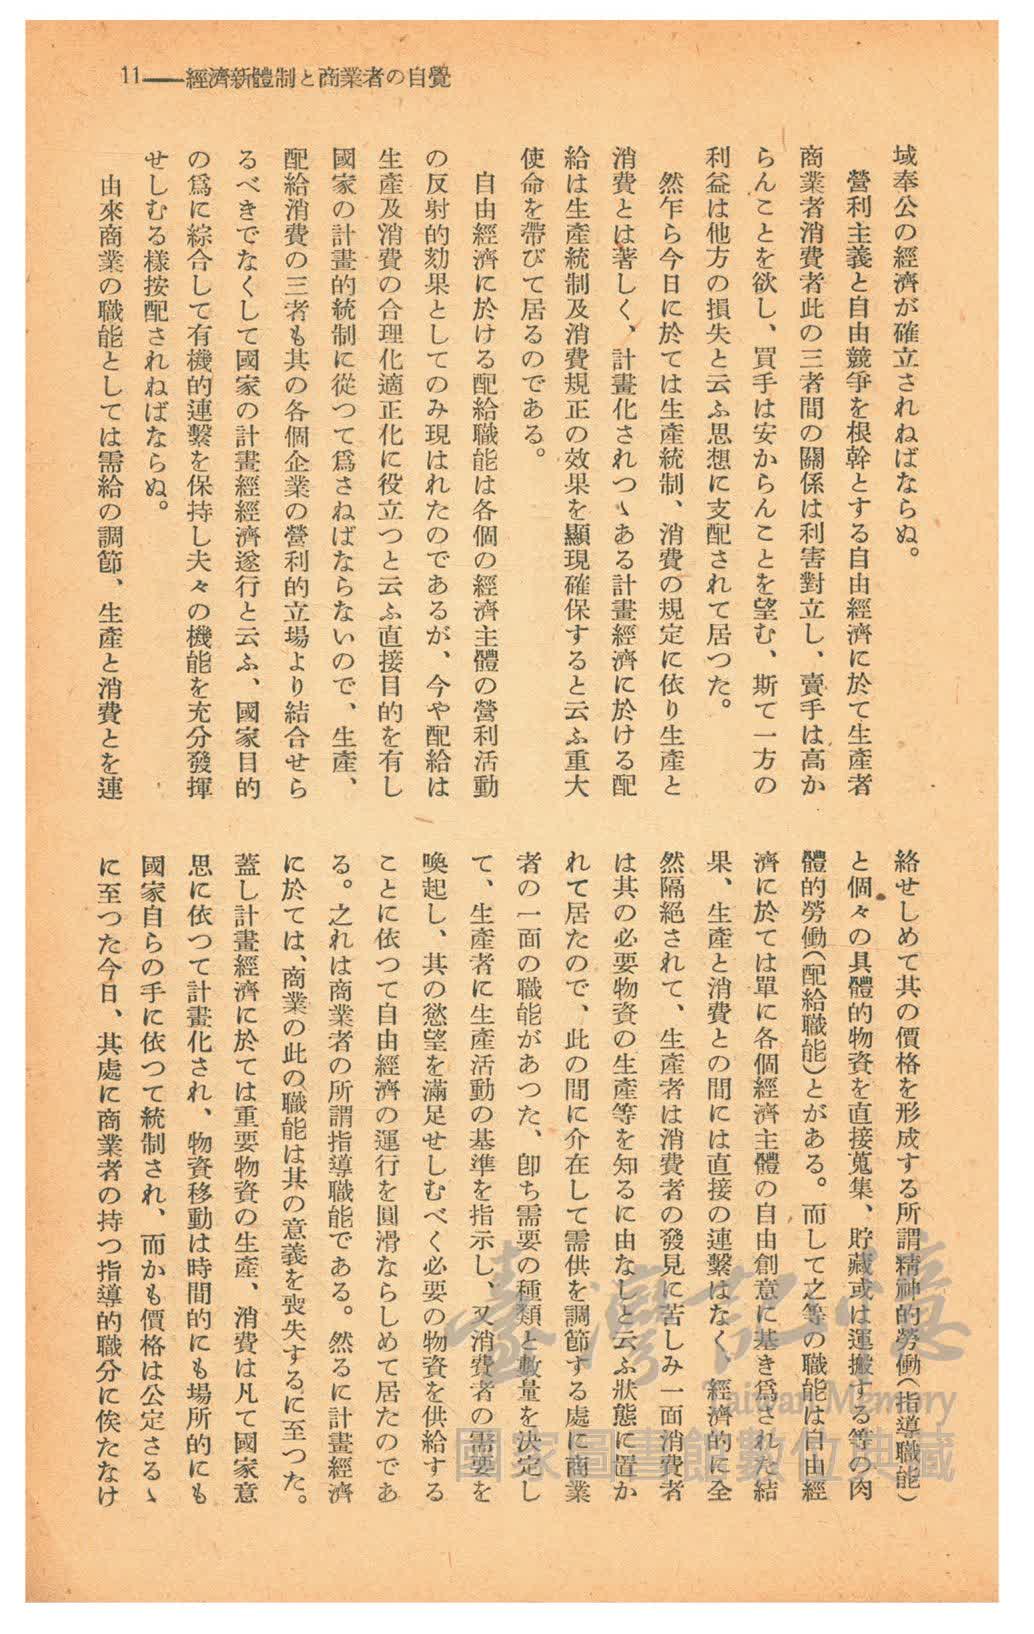 11——經濟新體制と商業者の自覺
域奉公の經濟が確立されねばならぬ。
營利主義と自由競爭を根幹とする自由經濟に於て生產者
商業者消費者此の三者間の關係は利害對立し、賣手は高か
らんことを欲し、買手は安からんことを望む、斯て一方の
利益は他方の損失と云ふ思想に支配されて居つた。
然乍ら今日に於ては生產統制、消費の規定に依り生產と
消費とは著しく、計畫化されつゝある計畫經濟に於ける配
給は生產統制及消費規正の效果を顯現確保すると云ふ重大
使命を帶びて居るのである。
自由經濟に於ける配給職能は各個の經濟主體の營利活動
の反射的効果としてのみ現はれたのであるが、今や配給は
生產及消費の合理化適正化に役立つと云ふ直接目的を有し
國家の計畫的統制に從つて爲さねばならないので、生產、
配給消費の三者も其の各個企業の營利的立場より結合せら
るべきでなくして國家の計畫經經濟遂行と云ふ、國家目的
の爲に綜合して有機的連繫を保持し夫々の機能を充分發揮
せしむる樣按配されねばならぬ。
由來商業の職能としては需給の調節、生產と消費とを連
絡せしめて其の價格を形成する所謂精神的勞働(指導職能)
と個々の具體的物資を直接蒐集、貯藏或は運搬する等の肉
體的勞働(配給職能)とがある。而して之等の職能は自由經
濟に於ては單に各個經濟主體の自由創意に基き爲された結
果、生產と消費との間には直接の連繫はなく、經濟的に全
然隔絕されて、生產者は消費者の發見に苦しみ一面消費者
は其の必要物資の生產等を知るに由なしと云ふ狀態に置か
れて居たので、此の間に介在して需供を調節する處に商業
者の一面の職能があつた、卽ち需要の種類と數量を決定し
て、生產者に生產活動の基準を指示し、又消費者の需要を
喚起し、其の慾望を滿足せしむべく必要の物資を供給する
ことに依つて自由經濟の運行を圓滑ならしめて居たのであ
る。之れは商業者の所謂指導職能である。然るに計畫經濟
に於ては、商業の此の職能は其の意義を喪失するに至つた。
蓋し計畫經濟に於ては重要物資の生產、消費は凡て國家意
思に依つて計畫化され、物資移動は時間的にも場所的にも
國家自らの手に依つて統制され、而かも價格は公定さるゝ
に至つた今日、其處に商業者の持つ指導的職分に俟たなけ
臺灣記憶
Taiwan Memory
國家圖書館數位典藏